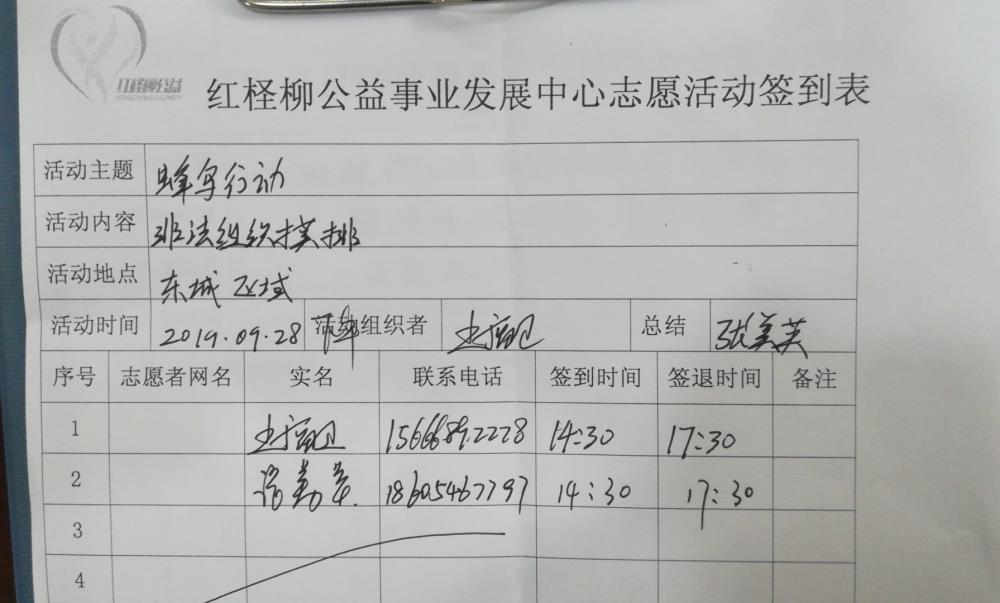 红柽柳公益
红柽柳公益事业发展中心志愿活动签到表
活动主题 蜂鸟行动
活动内容 非法组织摸排
活动地点 东城区域
活动时间 2019.09.28 活动组织者 总结 张美芙
序号 志愿者网名 实名 联系电话 签到时间 签退时间 备注
1 15666892228 14:30 17:30
2 18605467797 14:30 17:30
3
4